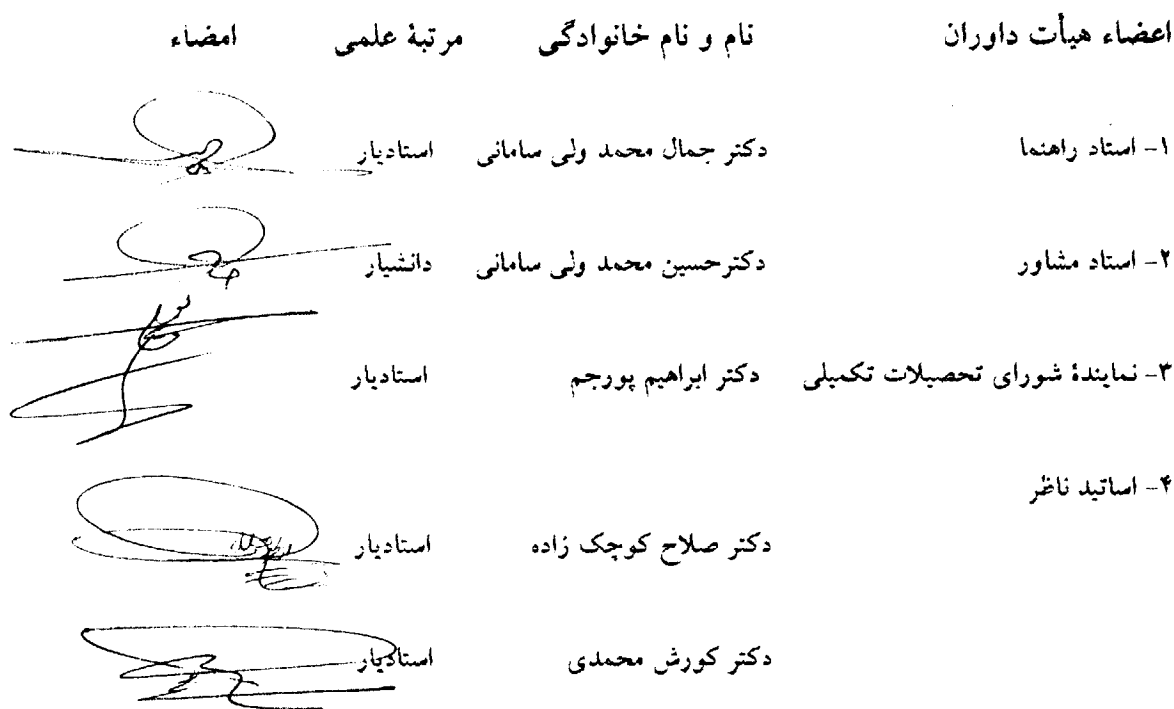 اعضاء هیأت داوران نام و نام خانوادگی مرتبۀ علمی امضاء
۱- استاد راهنما دکتر جمال محمد ولی سامانی استادیار
۲- استاد مشاور دکترحسین محمد ولی سامانی دانشیار
۳- نمایندۀ شورای تحصیلات تکمیلی دکتر ابراهیم پورجم استادیار
۴- اساتید ناظر
دکتر صلاح کوچک زاده استادیار
دکتر کورش محمدی استادیار